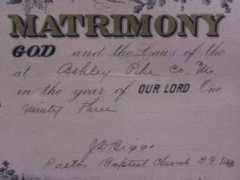 MATRIMONY
GOD and the Laws of the
at Ashley Pike Co. Mo.
in the year of OUR LORD One
ninety Three
Pastor Baptist Church